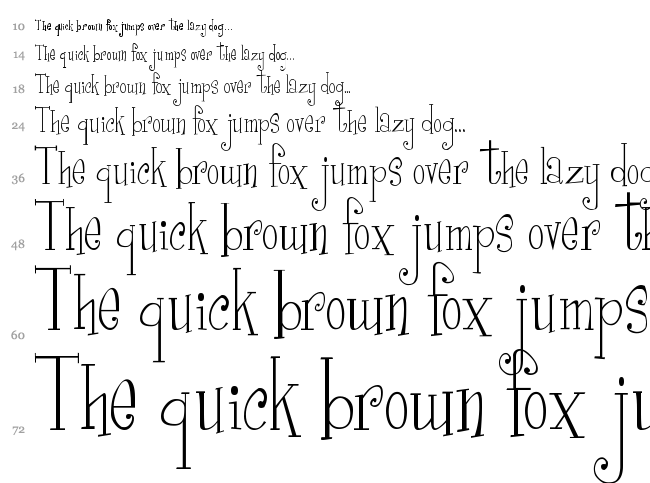 10 The quick brown fox jumps over the lazy dog...
14 The quick brown fox jumps over the lazy dog...
18 The quick brown fox jumps over the lazy dog...
24 The quick brown fox jumps over the lazy dog...
36 The quick brown fox jumps over the lazy dog
48 The quick brown fox jumps over th
60 The quick brown fox jumps
72 The quick brown fox ju